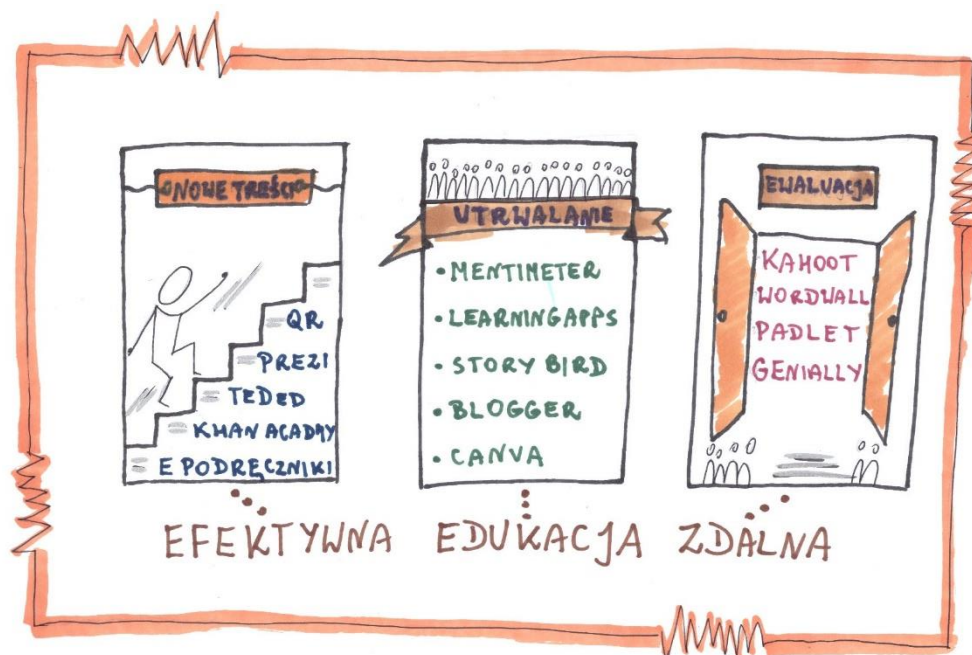 NOWE TREŚCI
QR
PREZI
TEDED
KHAN ACADMY
E PODRĘCZNIKI
UTRWALANIE
• MENTIMETER
• LEARNINGAPPS
• STORY BIRD
• BLOGGER
• CANVA
EWALUACJA
KAHOOT
WORDWALL
PADLET
GENIALLY
EFEKTYWNA EDUKACJA ZDALNA